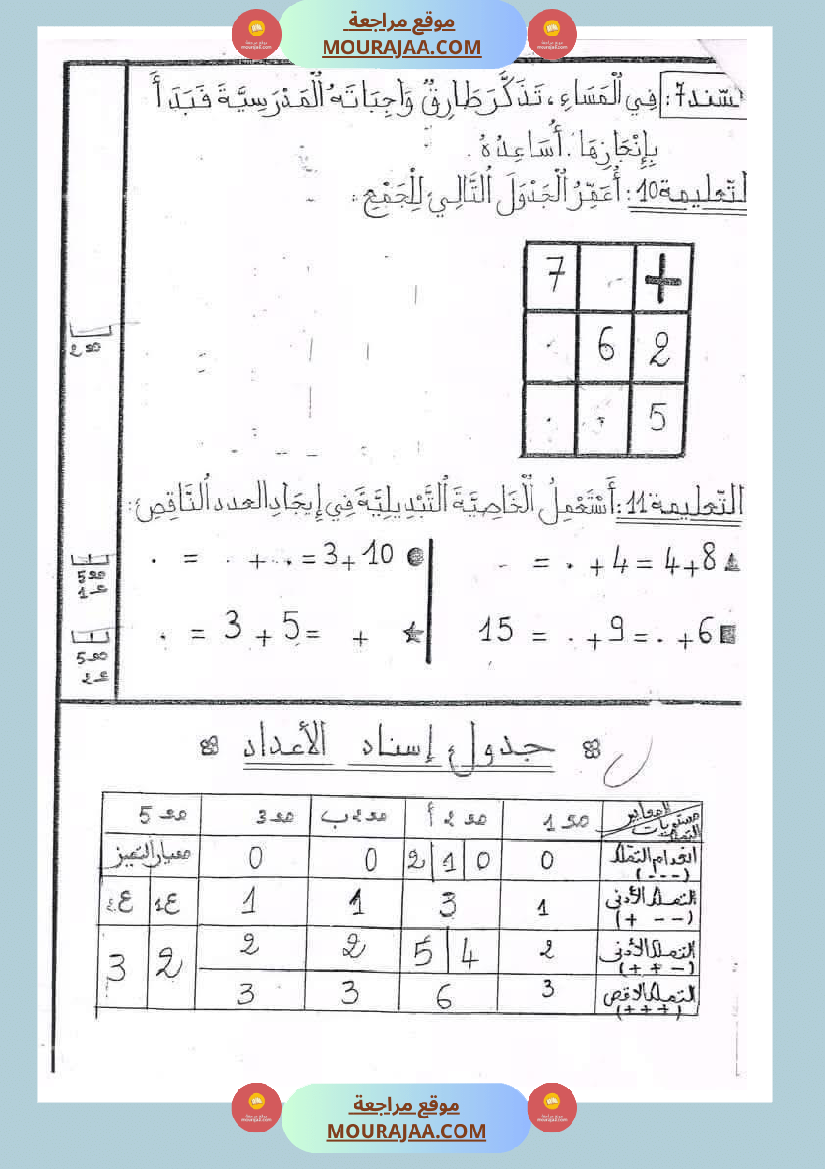 موقع مراجعة
MOURAJAA.COM
سّند7: فِي الْمَسَاءِ، تَذَكَّرَ طَارِقٌ وَاجِبَاتَهُ الْمَدْرَسِيَّةَ فَبَدَأَ
بِإِنْجَازِهَا. أُسَاعِدُهُ.
لتّعليمة10: أُعَمِّرُ الْجَدْوَلَ التَّالِيَ لِلْجَمْعِ.
+ 7
2 6
5
مع2
التّعليمة11: أَسْتَعْمِلُ الْخَاصِيَّةَ التَّبْدِيلِيَّةَ فِي إِيجَادِ العدد النَّاقِصِ:
8+4 = 4+ . =
10+3 = . + . = .
مع5
ع1
6+ . = 9+ . = 15
+ = 5+3 = .
مع5
ع2
جدول إسناد الأعداد
المعايير
مستويات
التملك
مع 1
مع 2 أ
مع 2 ب
مع 3
مع 5
انعدام التملك
(---)
0
0 1 2
0
0
معيار التميز
التملك الأدنى
(+ --)
1
3
1
1
ع1
ع2
التملك الأدنى
(++-)
2
4 5
2
2
2
3
التملك الأقصى
(+++)
3
6
3
3
موقع مراجعة
MOURAJAA.COM